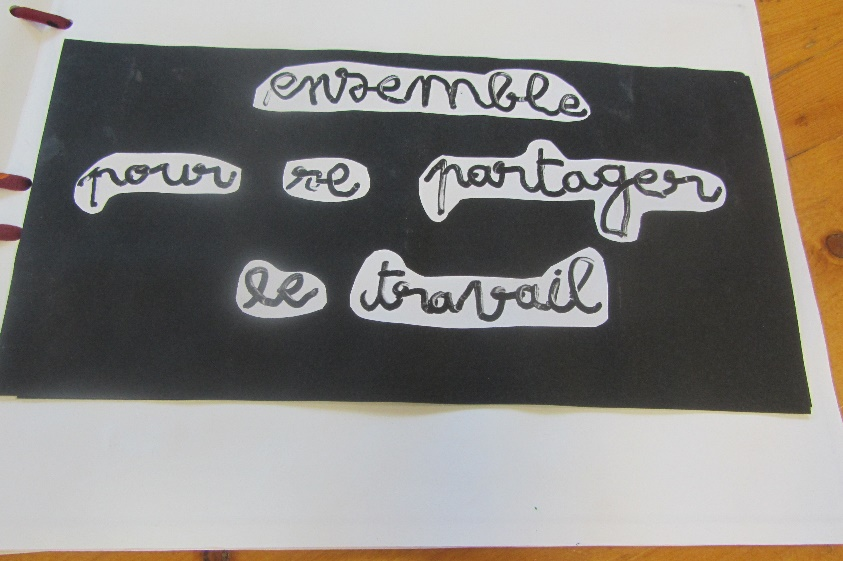 ensemble
pour se partager
le travail